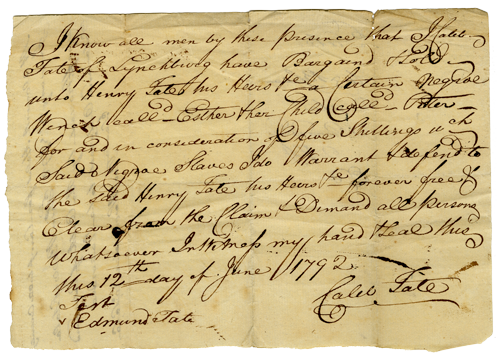 I Know all men by these presence that I Caleb
Tate of Lynchburg have Bargaind & Sold
unto Henry Tate his Heirs &c a Certain Negroe
Wench call^d Esther & her Child call^d Peter
for and in consideration of five Shillings w^ch
Said Negroe Slaves I do Warrant & defend to
the Said Henry Tate his Heirs &c forever free &
Clear from the Claim & Demand all Persons
Whatsoever In Witness my hand & Seal this
this 12^th day of June 1792
Test Caleb Tate
Edmund Tate